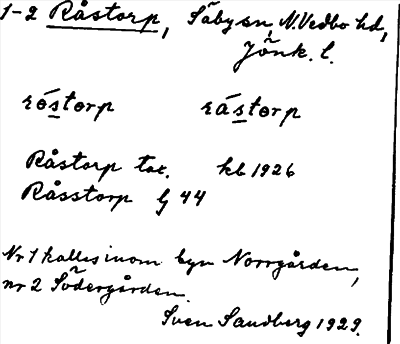 1-2 Råstorp, Säby sn, N. Vedbo hd,
Jönk. l.
róstorp rástorp
Råstorp tox. hb 1926
Råsstorp G 44
Nr 1 kallas inom byn Norrgården,
nr 2 Södergården.
Sven Sandberg 1929.